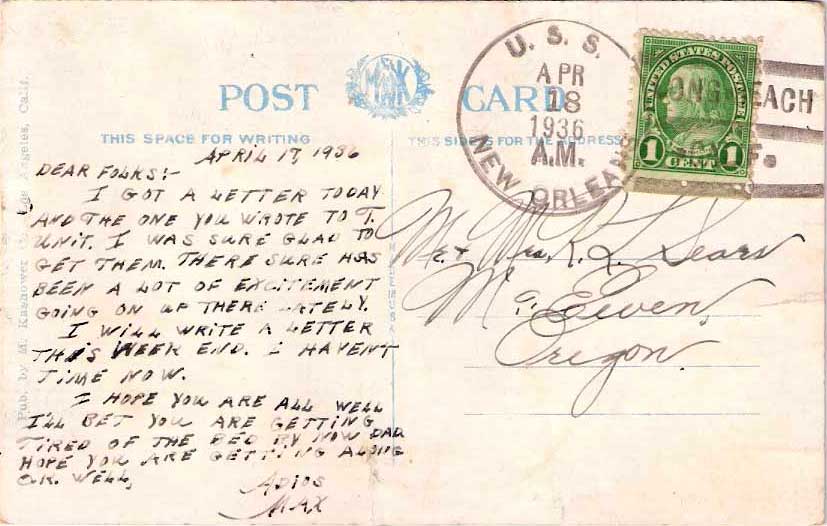 POST CARD
MWK
THIS SPACE FOR WRITING
THIS SIDE IS FOR THE ADDRESS
U. S. S.
NEW ORLEANS
APR
18
1936
A.M.
LONG BEACH
UNITED STATES POSTAGE
1 CENT 1
APRIL 17, 1936
DEAR FOLKS:-
I GOT A LETTER TODAY
AND THE ONE YOU WROTE TO T.
UNIT. I WAS SURE GLAD TO
GET THEM. THERE SURE HAS
BEEN A LOT OF EXCITEMENT
GOING ON UP THERE LATELY.
I WILL WRITE A LETTER
THIS WEEK END. I HAVENT
TIME NOW.
I HOPE YOU ARE ALL WELL
I'LL BET YOU ARE GETTING
TIRED OF THE BED BY NOW DAD
HOPE YOU ARE GETTING ALONG
O.K. WELL,
ADIOS
MAX
Mr. & Mrs. R. L. Sears
McEwen,
Oregon.
Pub. by M. Kashower Co. Los Angeles, Calif.